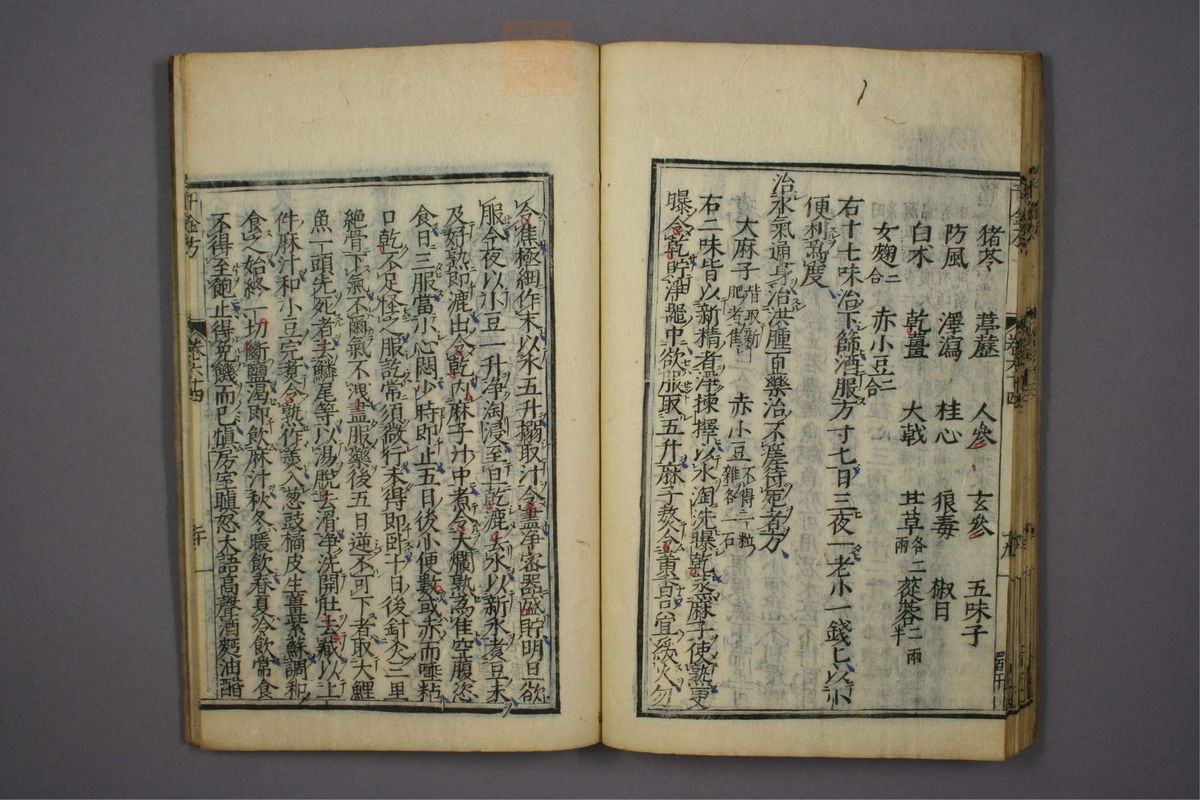 猪苓 葶藶 人參 玄參 五味子
防風 澤瀉 桂心 狼毒 椒目
白朮 乾薑 大戟 甘草各二兩 蓯蓉二兩半
女麴二合 赤小豆二合
右十七味治下篩酒服方寸匕日三夜一老小一錢匕以小
便利爲度
治水氣通身洪腫百藥治不差待死者方
大麻子皆取新肥者佳 赤小豆不得一粒雜各一石
右二味皆以新精者淨揀擇以水淘洗曝乾蒸麻子使熟更
曝令乾貯淨器中欲服取五升麻子熬令黃香宜緩火勿
令焦極細作末以水五升搦取汁令盡淨密器盛貯明旦欲
服今夜以小豆一升淨淘浸至旦乾漉去水以新水煮豆未
及好熟即漉出令乾內麻子汁中煮令大爛熟爲佳空腹恣
食日三服當小心悶少時即止五日後小便數或赤而唾粘
口乾不足怪之服訖常須微行未得即臥十日後針灸三里
絕骨下氣不爾氣不洩盡服藥後五日逆不可下者取大鯉
魚一頭先死者去鱗尾等以湯脫去滑淨洗開肚去藏以上
件麻汁和小豆完煮令熟作羹入葱豉橘皮生薑紫蘇調和
食之始終一切斷鹽渴即飲麻汁秋冬暖飲春夏冷飲常食
不得至飽止得免饑而已慎房室瞋怒大語高聲酒麪油醋
千金方 卷六十四